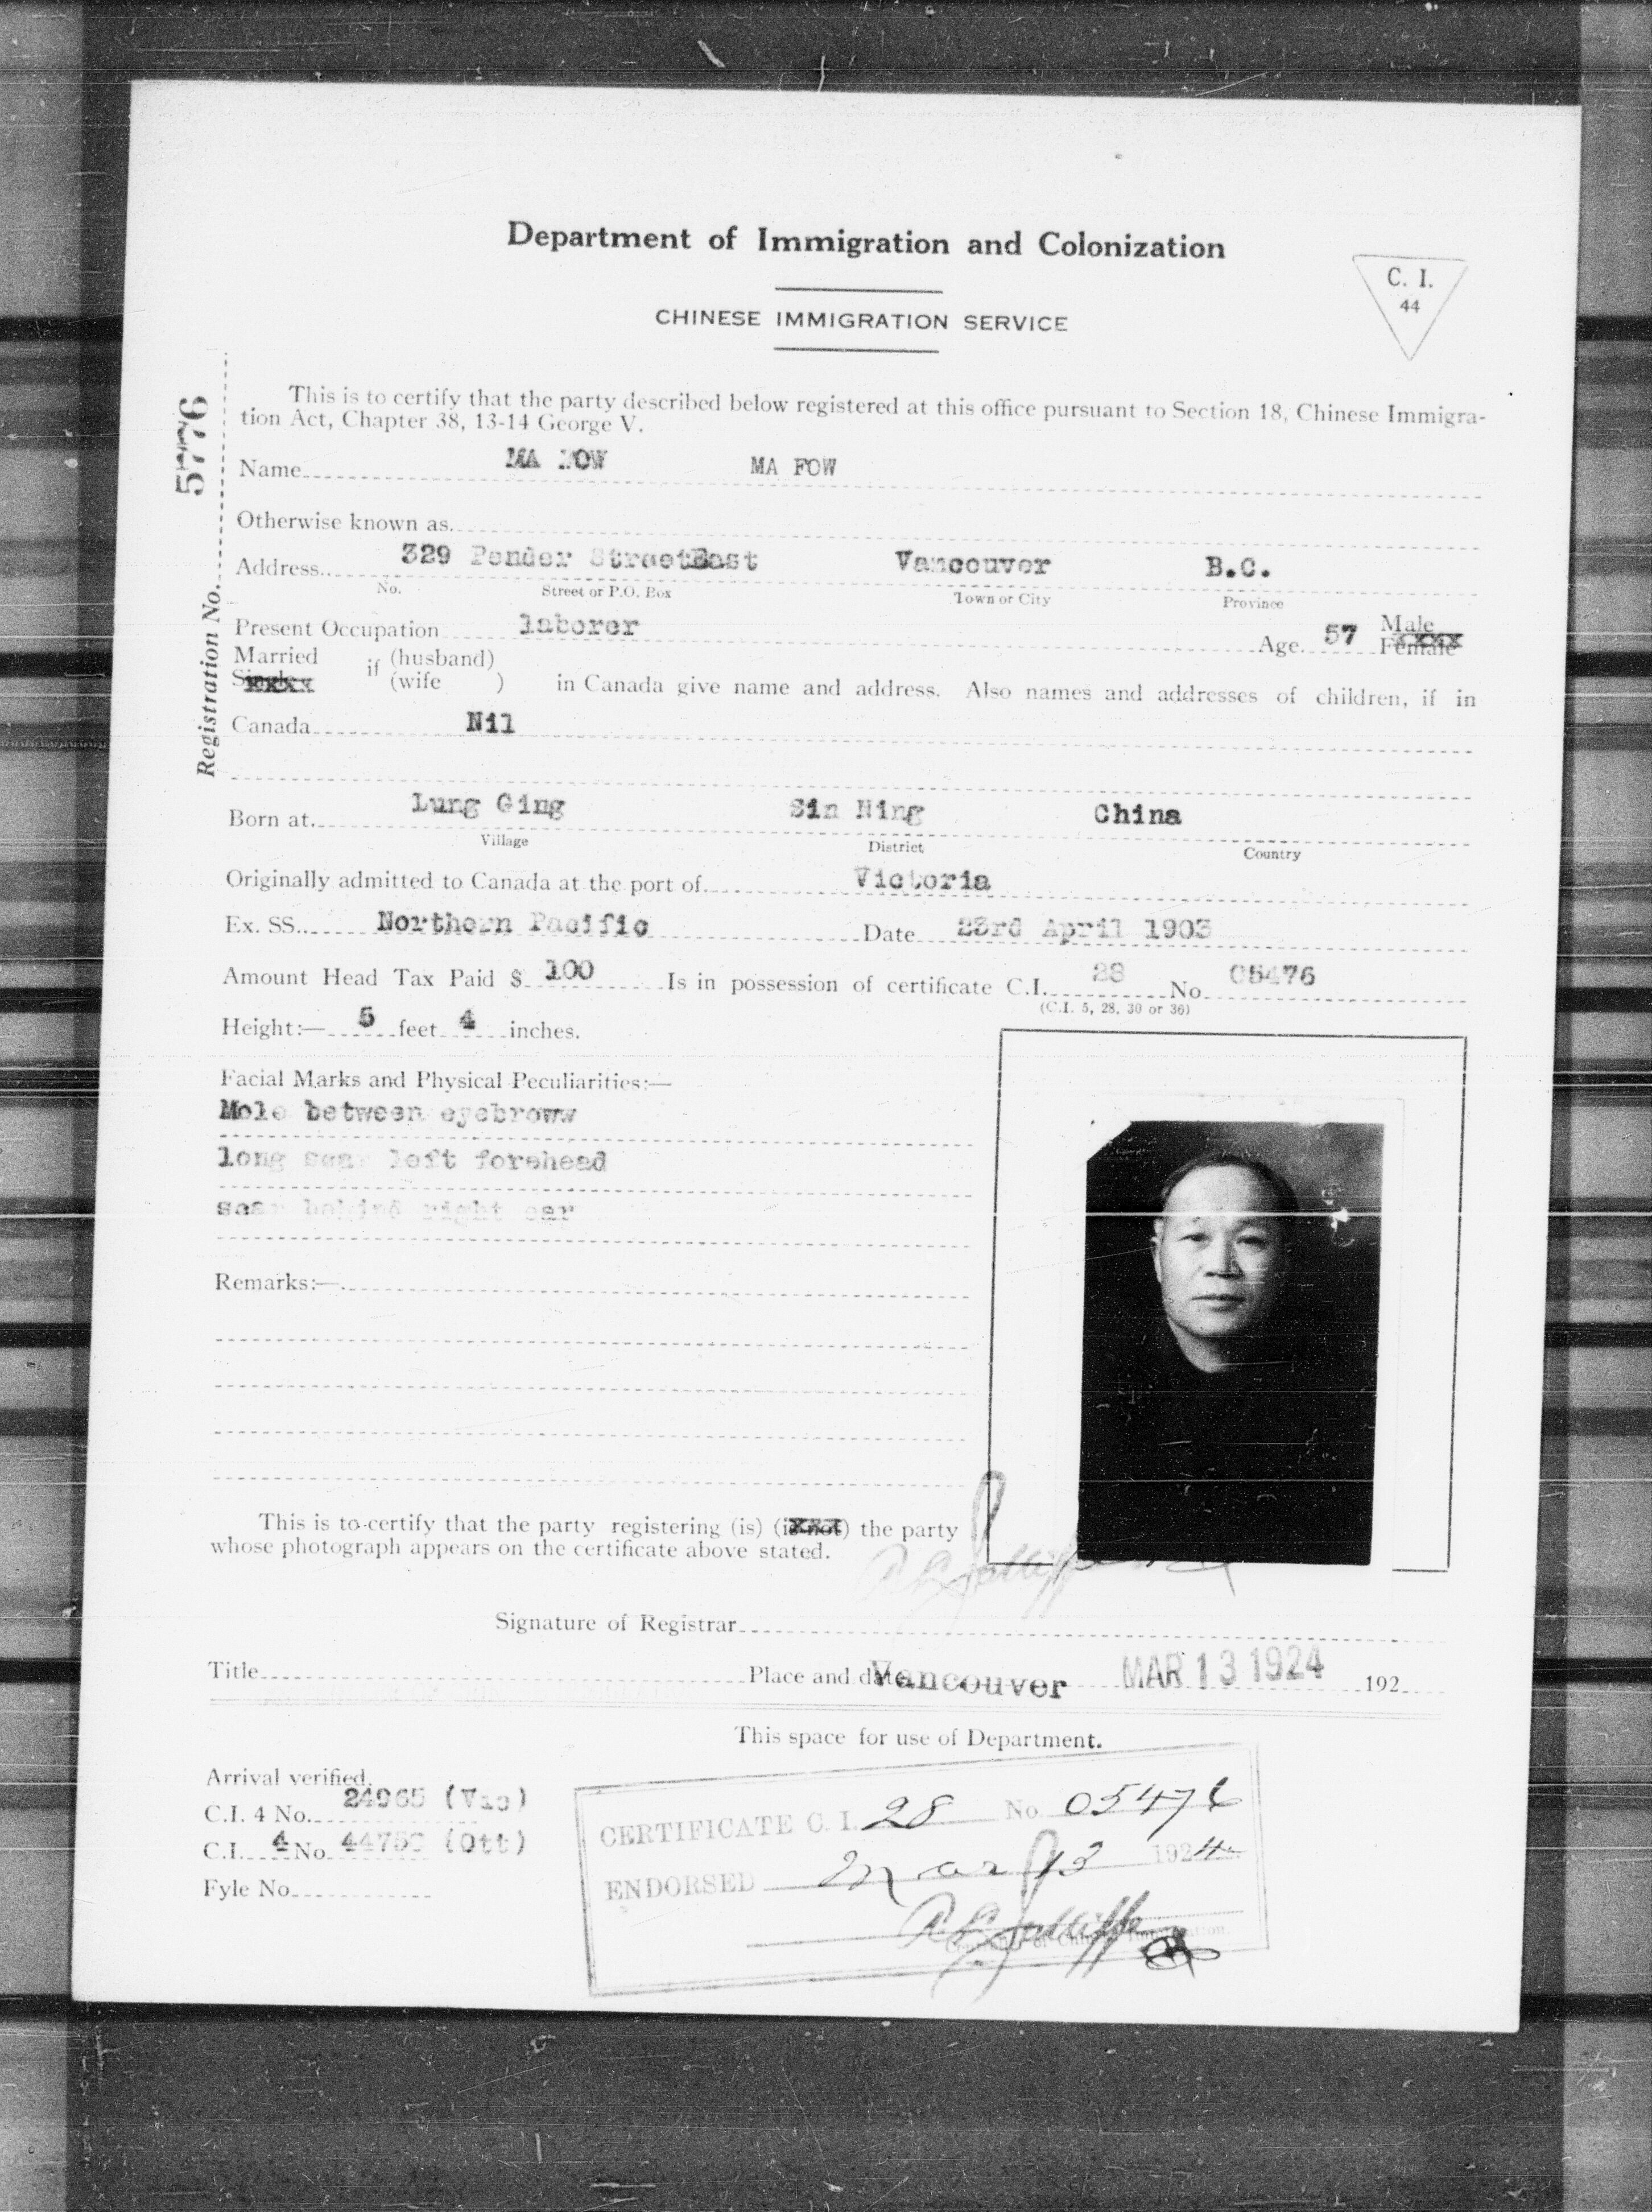 Department of Immigration and Colonization
CHINESE IMMIGRATION SERVICE
C. I.
44
Registration No. 5776
This is to certify that the party described below registered at this office pursuant to Section 18, Chinese Immigra-
tion Act, Chapter 38, 13-14 George V.
Name MA FOW
Otherwise known as
Address 329 Pender StreetEast Vancouver B.C.
No. Street or P.O. Box Town or City Province
Present Occupation laborer Age 57 Male Female
Married
Single if (husband)
(wife ) in Canada give name and address. Also names and addresses of children, if in
Canada Nil
Born at Lung Ging Sin Ning China
Village District Country
Originally admitted to Canada at the port of Victoria
Ex. SS. Northern Pacific Date 23rd April 1903
Amount Head Tax Paid $ 100 Is in possession of certificate C.I. 28 No 05476
(C.I. 5, 28, 30 or 36)
Height:— 5 feet 4 inches.
Facial Marks and Physical Peculiarities:—
Mole between eyebroww
long scar left forehead
scar behind right ear
Remarks:—
This is to certify that the party registering (is) (is not) the party
whose photograph appears on the certificate above stated.
Signature of Registrar
Title Place and date Vancouver MAR 13 1924 192
This space for use of Department.
Arrival verified.
C.I. 4 No. 24965 (Vic)
C.I. 4 No. (Ott)
Fyle No.
CERTIFICATE C. I. 28 No. 05476
ENDORSED Mar 13 1924